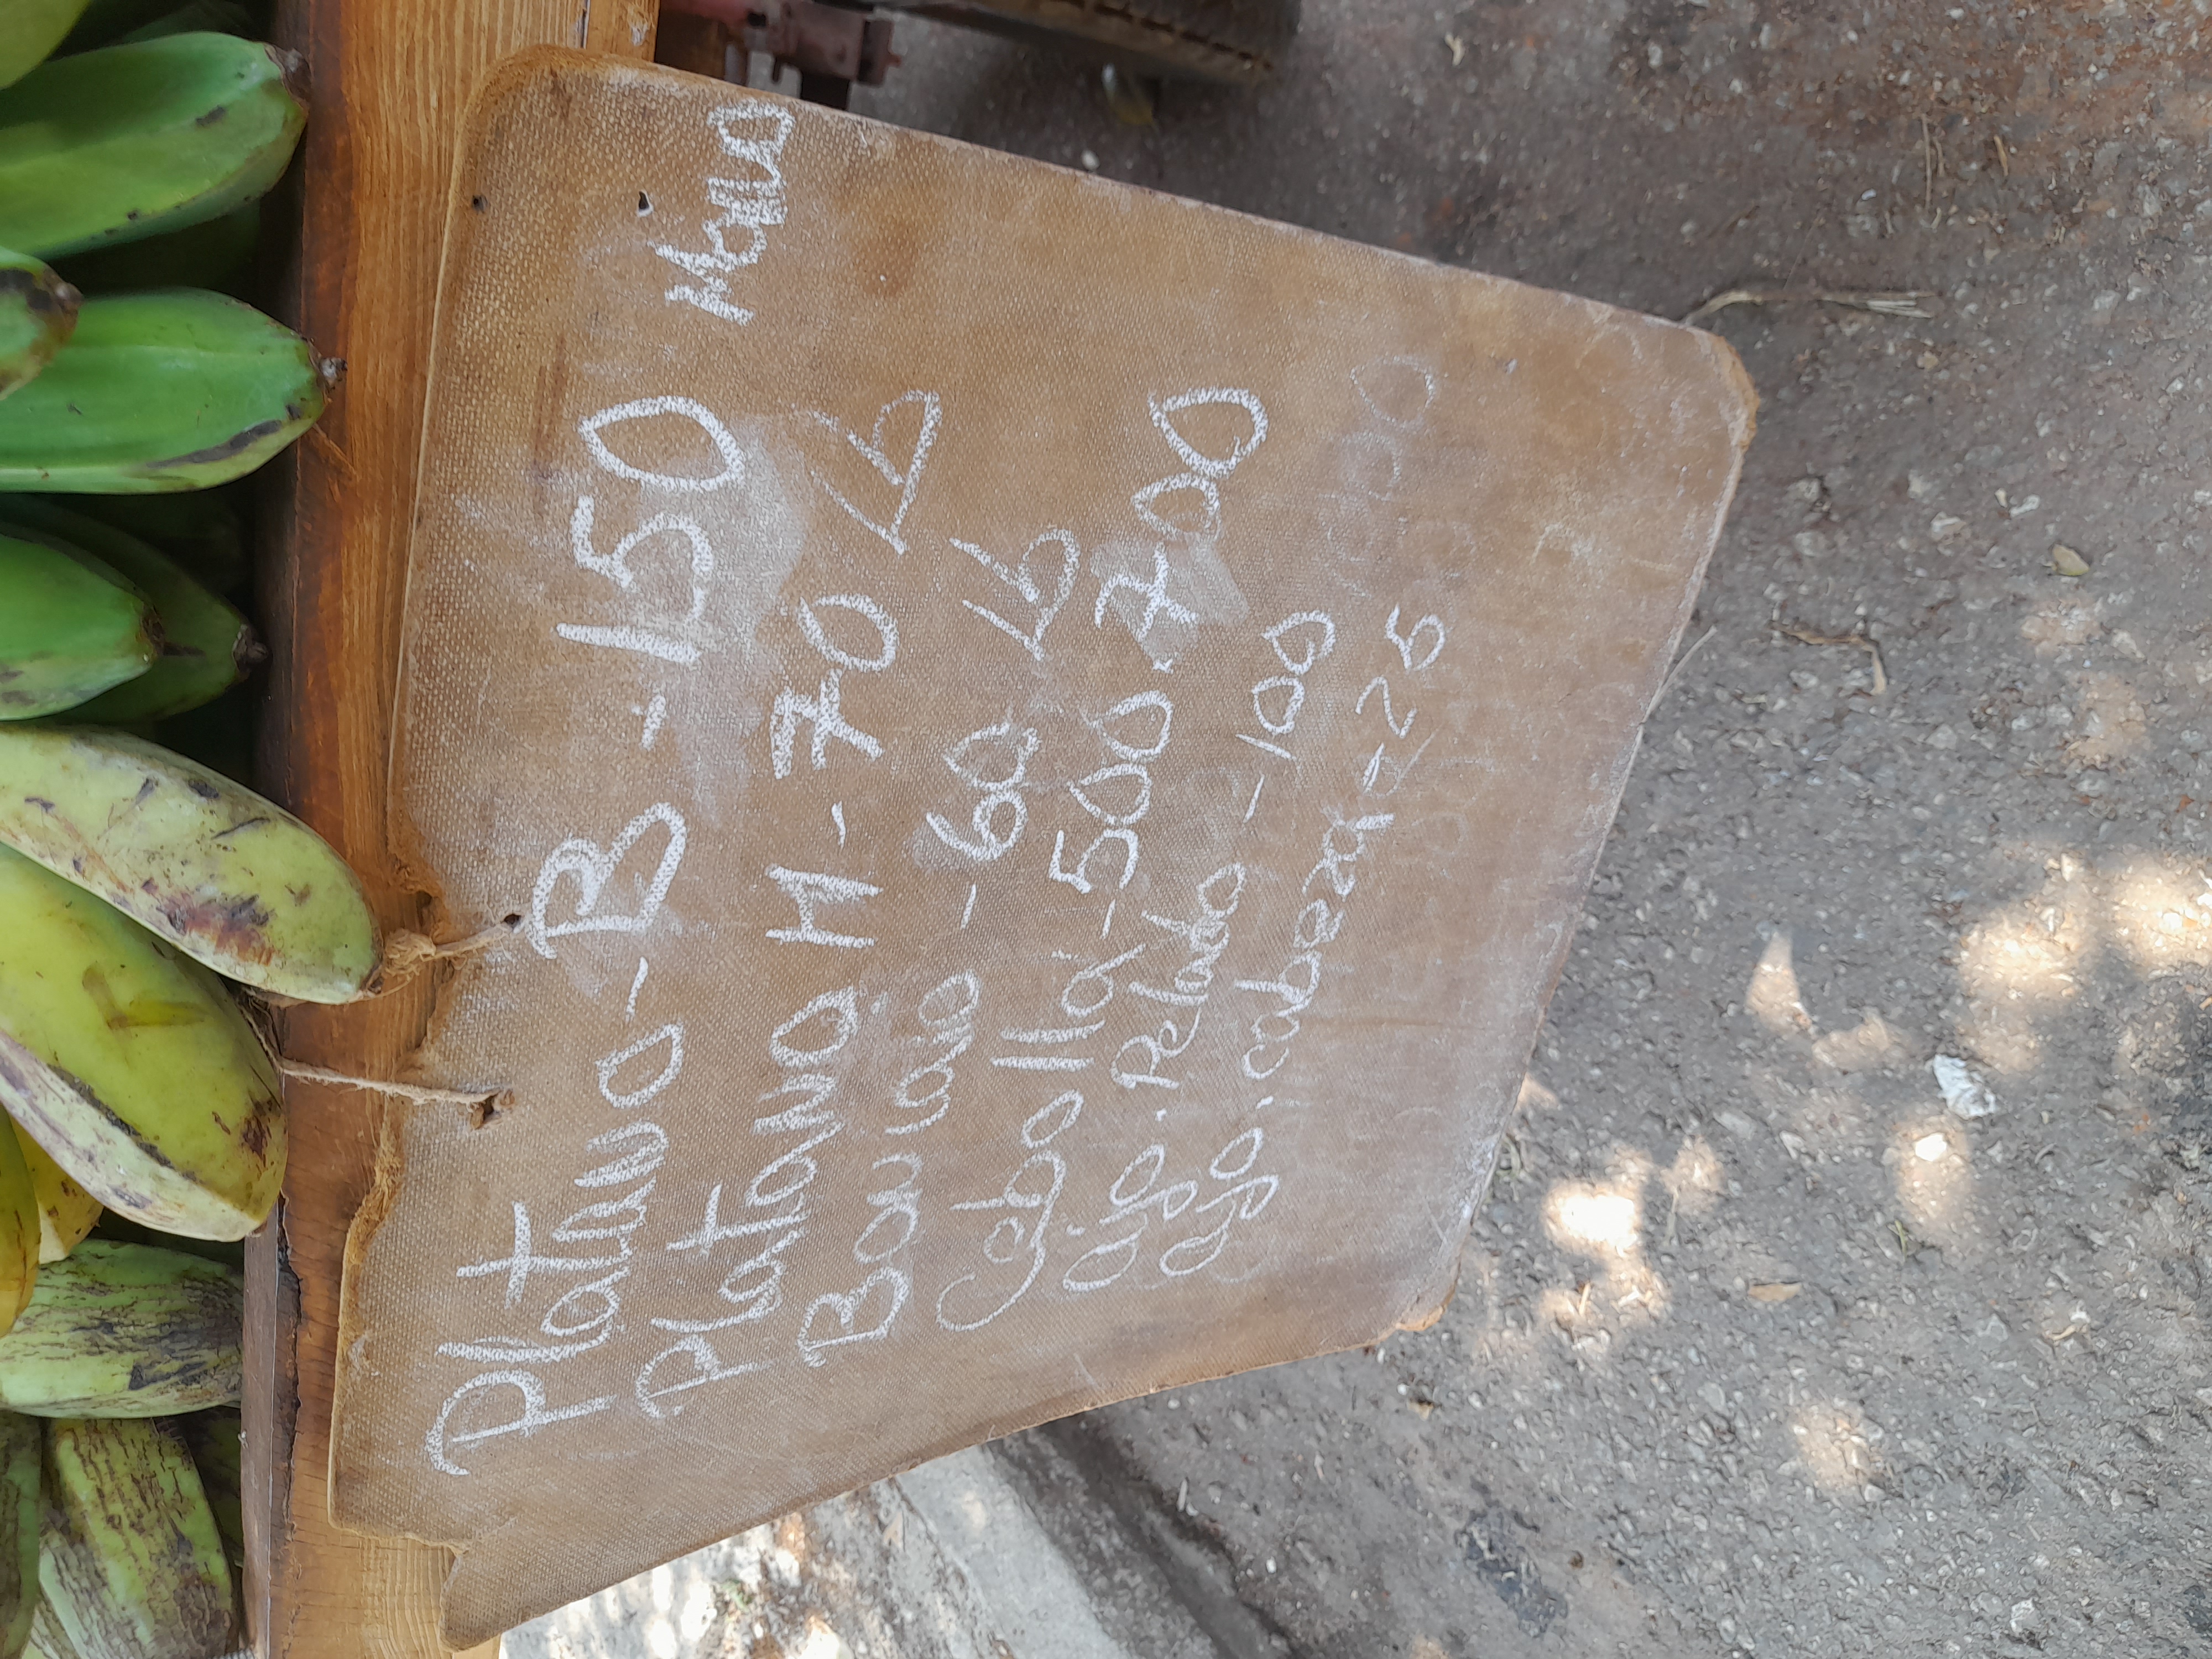 Platano - B - 150 Mano
Platano H - 70 Lb
Boniato - 60 Lb
Cebolla - 500.700
ajo. Pelado - 100
ajo. cabeza - 25